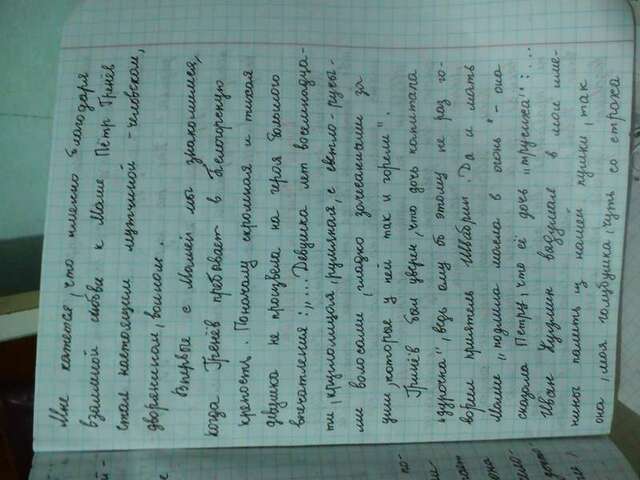 Мне кажется, что именно благодаря
взаимной любви к Маше Пётр Гренёв
стал настоящим мужчиной - человеком,
дворянином, воином.
Впервые с Машей мы знакомимся,
когда Гренёв пребывает в Белогорскую
крепость. Поначалу скромная и тихая
девушка не произвела на героя большого
впечатления: „... Девушка лет восемнадца-
ти, круглолицая, румяная, с светло-русы-
ми волосами, гладко зачесаными за
уши, которые у ней так и горели".
Гринёв был уверен, что дочь капитана
„дурочка", ведь ему об этому не раз го-
ворил приятель Швабрин. Да и мать
Маши „подлила масла в огонь" - она
сказала Петру, что её дочь „трусиха": ...
Иван Кузмич выдумал в мои име-
нины палить из нашей пушки, так
она, моя голубушка, чуть со страха